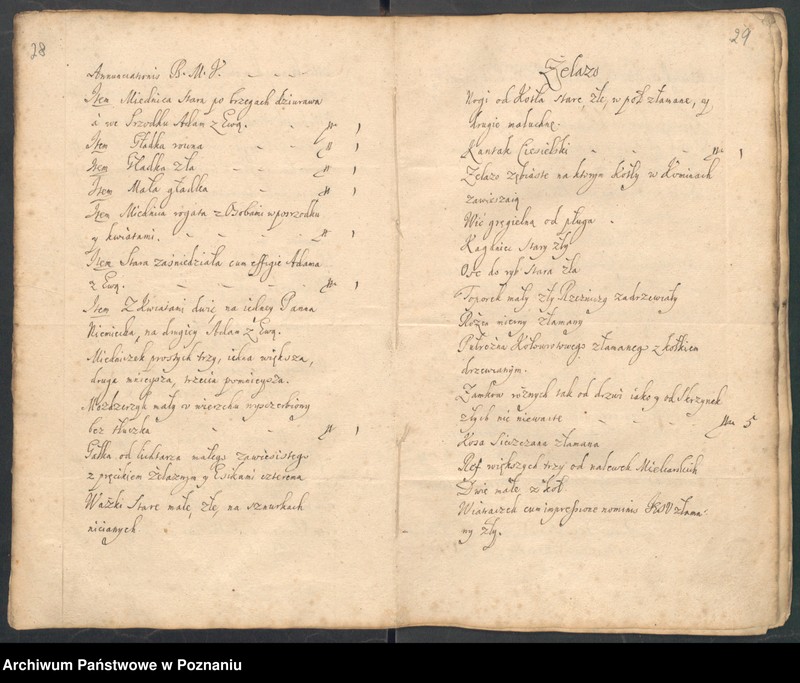 28
Annunciationis B. M. V.
Item Miednica Stara po brzegach dziurawa
a we Srzodku Adam z Ewą. 1
Item Gładka rowna 1
Item Gładka zła 1
Item Mała gładka 1
Item Miednica rogata z Osobami wposrzodku
y kwiatami. 1
Item Stara zaśniedziała cum effigie Adama
z Ewą. 1
Item Z Kwiatami dwie na iedney Panna
Niemiecka, na drugiey Adam z Ewą.
Miedniczek prostych trzy, iedna większa,
druga mnieysza, trzecia pomnieysza.
Mozdzerzyk mały w wierzchu wyszczerbiony
bez tłuczka 1
Gałka od lichtarza małego zawiesistego
z pręcikiem żelaznym y Esikami czterema
Ważki Stare małe, złe, na sznurkach
nicianych
29
Żelazo
Nogi od Kotła Stare, złe, w puł złamane, y
drugie maluchne.
Kantak Ciesielski 1
Zelazo zębiaste na ktorym kotły w Kominach
zawieszaią
Wić gręgielną od pługa
Kaganiec Stary zły
Ość do ryb Stara zła
Toporek mały zły Rzezniczy zadrzewiały
Rożen mierny złamany
Kołowrotowego złamanego z kołkiem
drzewianym.
Zamkow rożnych tak od drzwi iako y od Skrzynek
złych nic niewarte 5
Kosa Sieczczana złamana
Ref większych trzy od nalewek Miedzianych
Dwie małe, z koł
cum impressione nominis IESV złama-
ny zły.
Archiwum Państwowe w Poznaniu